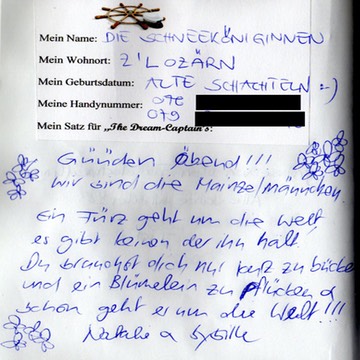 Mein Name: DIE SCHNEEKÖNIGINNEN
Mein Wohnort: Z'LOZÄRN
Mein Geburtsdatum: ALTE SCHACHTELN :-)
Meine Handynummer: 076
079
Mein Satz für „The Dream-Captain's:
Günden Obend!!!
wir sind die Mainzelmännchen
Ein Fürz geht um die Welt,
es gibt keinen der ihn hält
Du brauchst dich nur kurz zu bücken
und ein Blümelein zu pflücken &
schon geht er um die Welt!!!
Natalie & Sybille